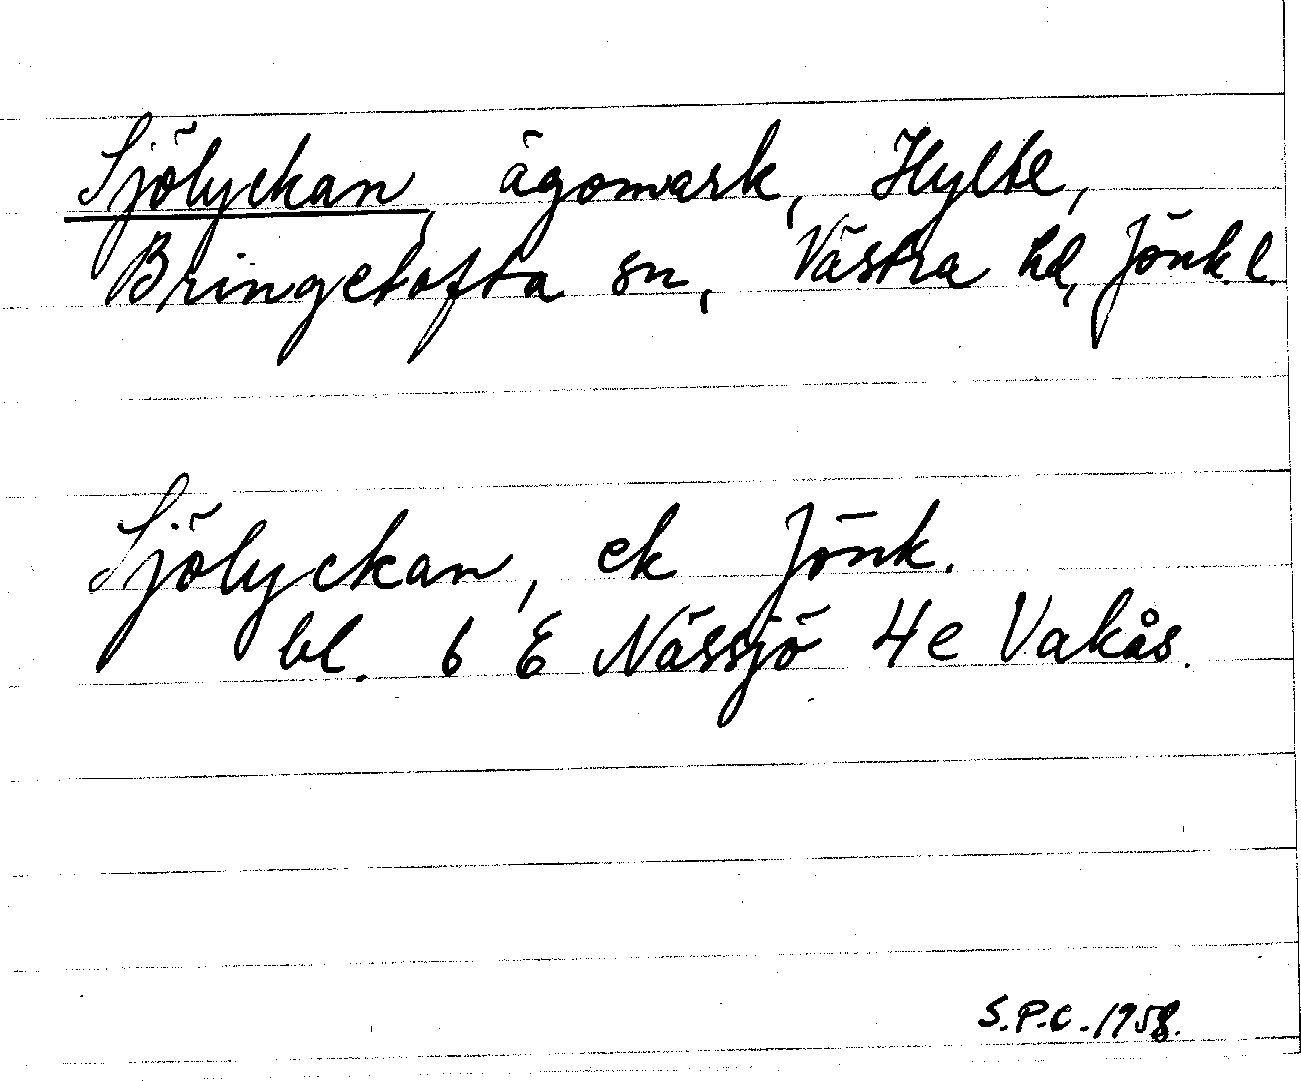 Sjölyckan, ägomark, Hylte,
Bringetofta sn, Västra hd, Jönk. l.
Sjölyckan, ek Jönk.
bl. 6 E Nässjö 4e Vakås.
S.P.C. 1958.